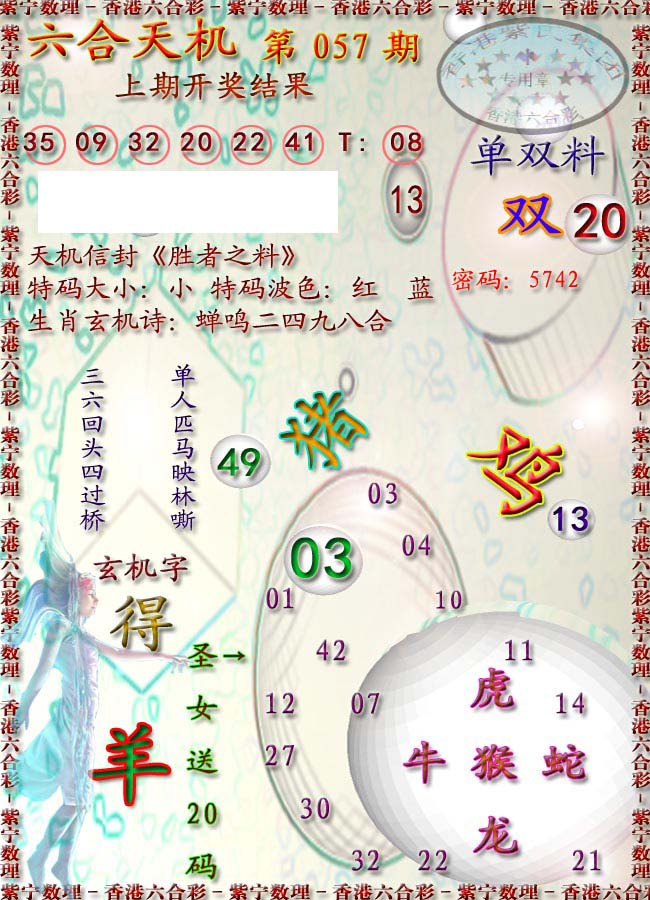 紫宁数理－香港六合彩－紫宁数理－香港六合彩－紫宁数理－香港六合彩－
六合天机 第 057 期
上期开奖结果
35 09 32 20 22 41 T: 08
专用章
香港六合彩
单双料
双 20
13
天机信封《胜者之料》
特码大小: 小 特码波色: 红 蓝
密码: 5742
生肖玄机诗: 蝉鸣二四九八合
单人匹马映林嘶
三六回头四过桥
49
猪
鸡
13
03
04
03
01
10
玄机字
得
42
11
圣→
女
送
20
码
羊
12
07
14
27
30
32
22
21
虎
牛 猴 蛇
龙
紫宁数理－香港六合彩－紫宁数理－香港六合彩－紫宁数理－香港六合彩－